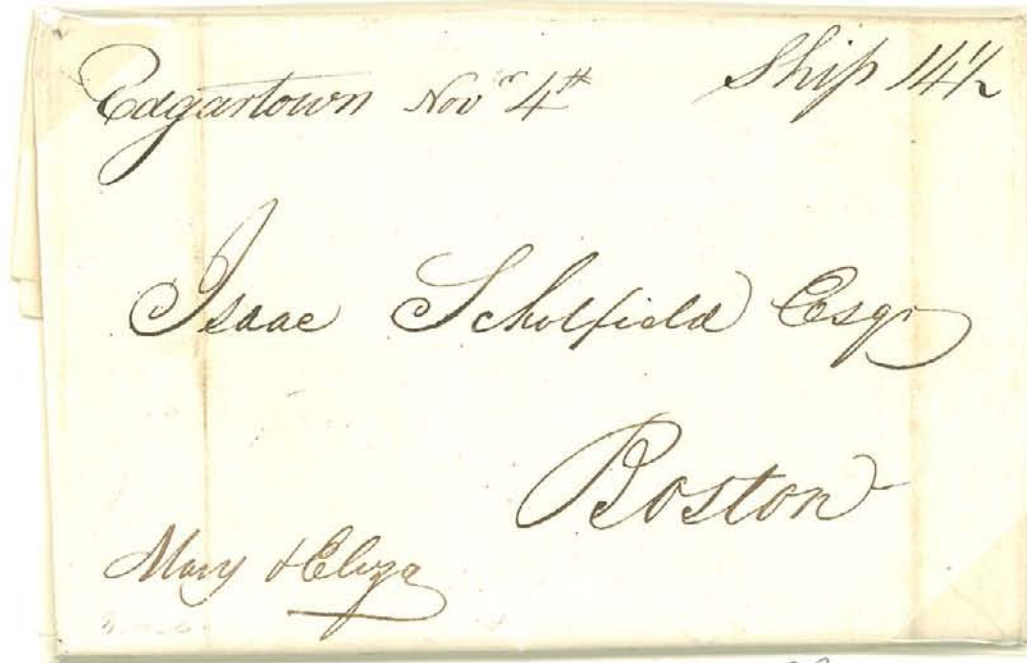 Edgartown Nov.r 4th Ship 14½
Isaac Scholfield Esqr
Boston
Mary & Eliza